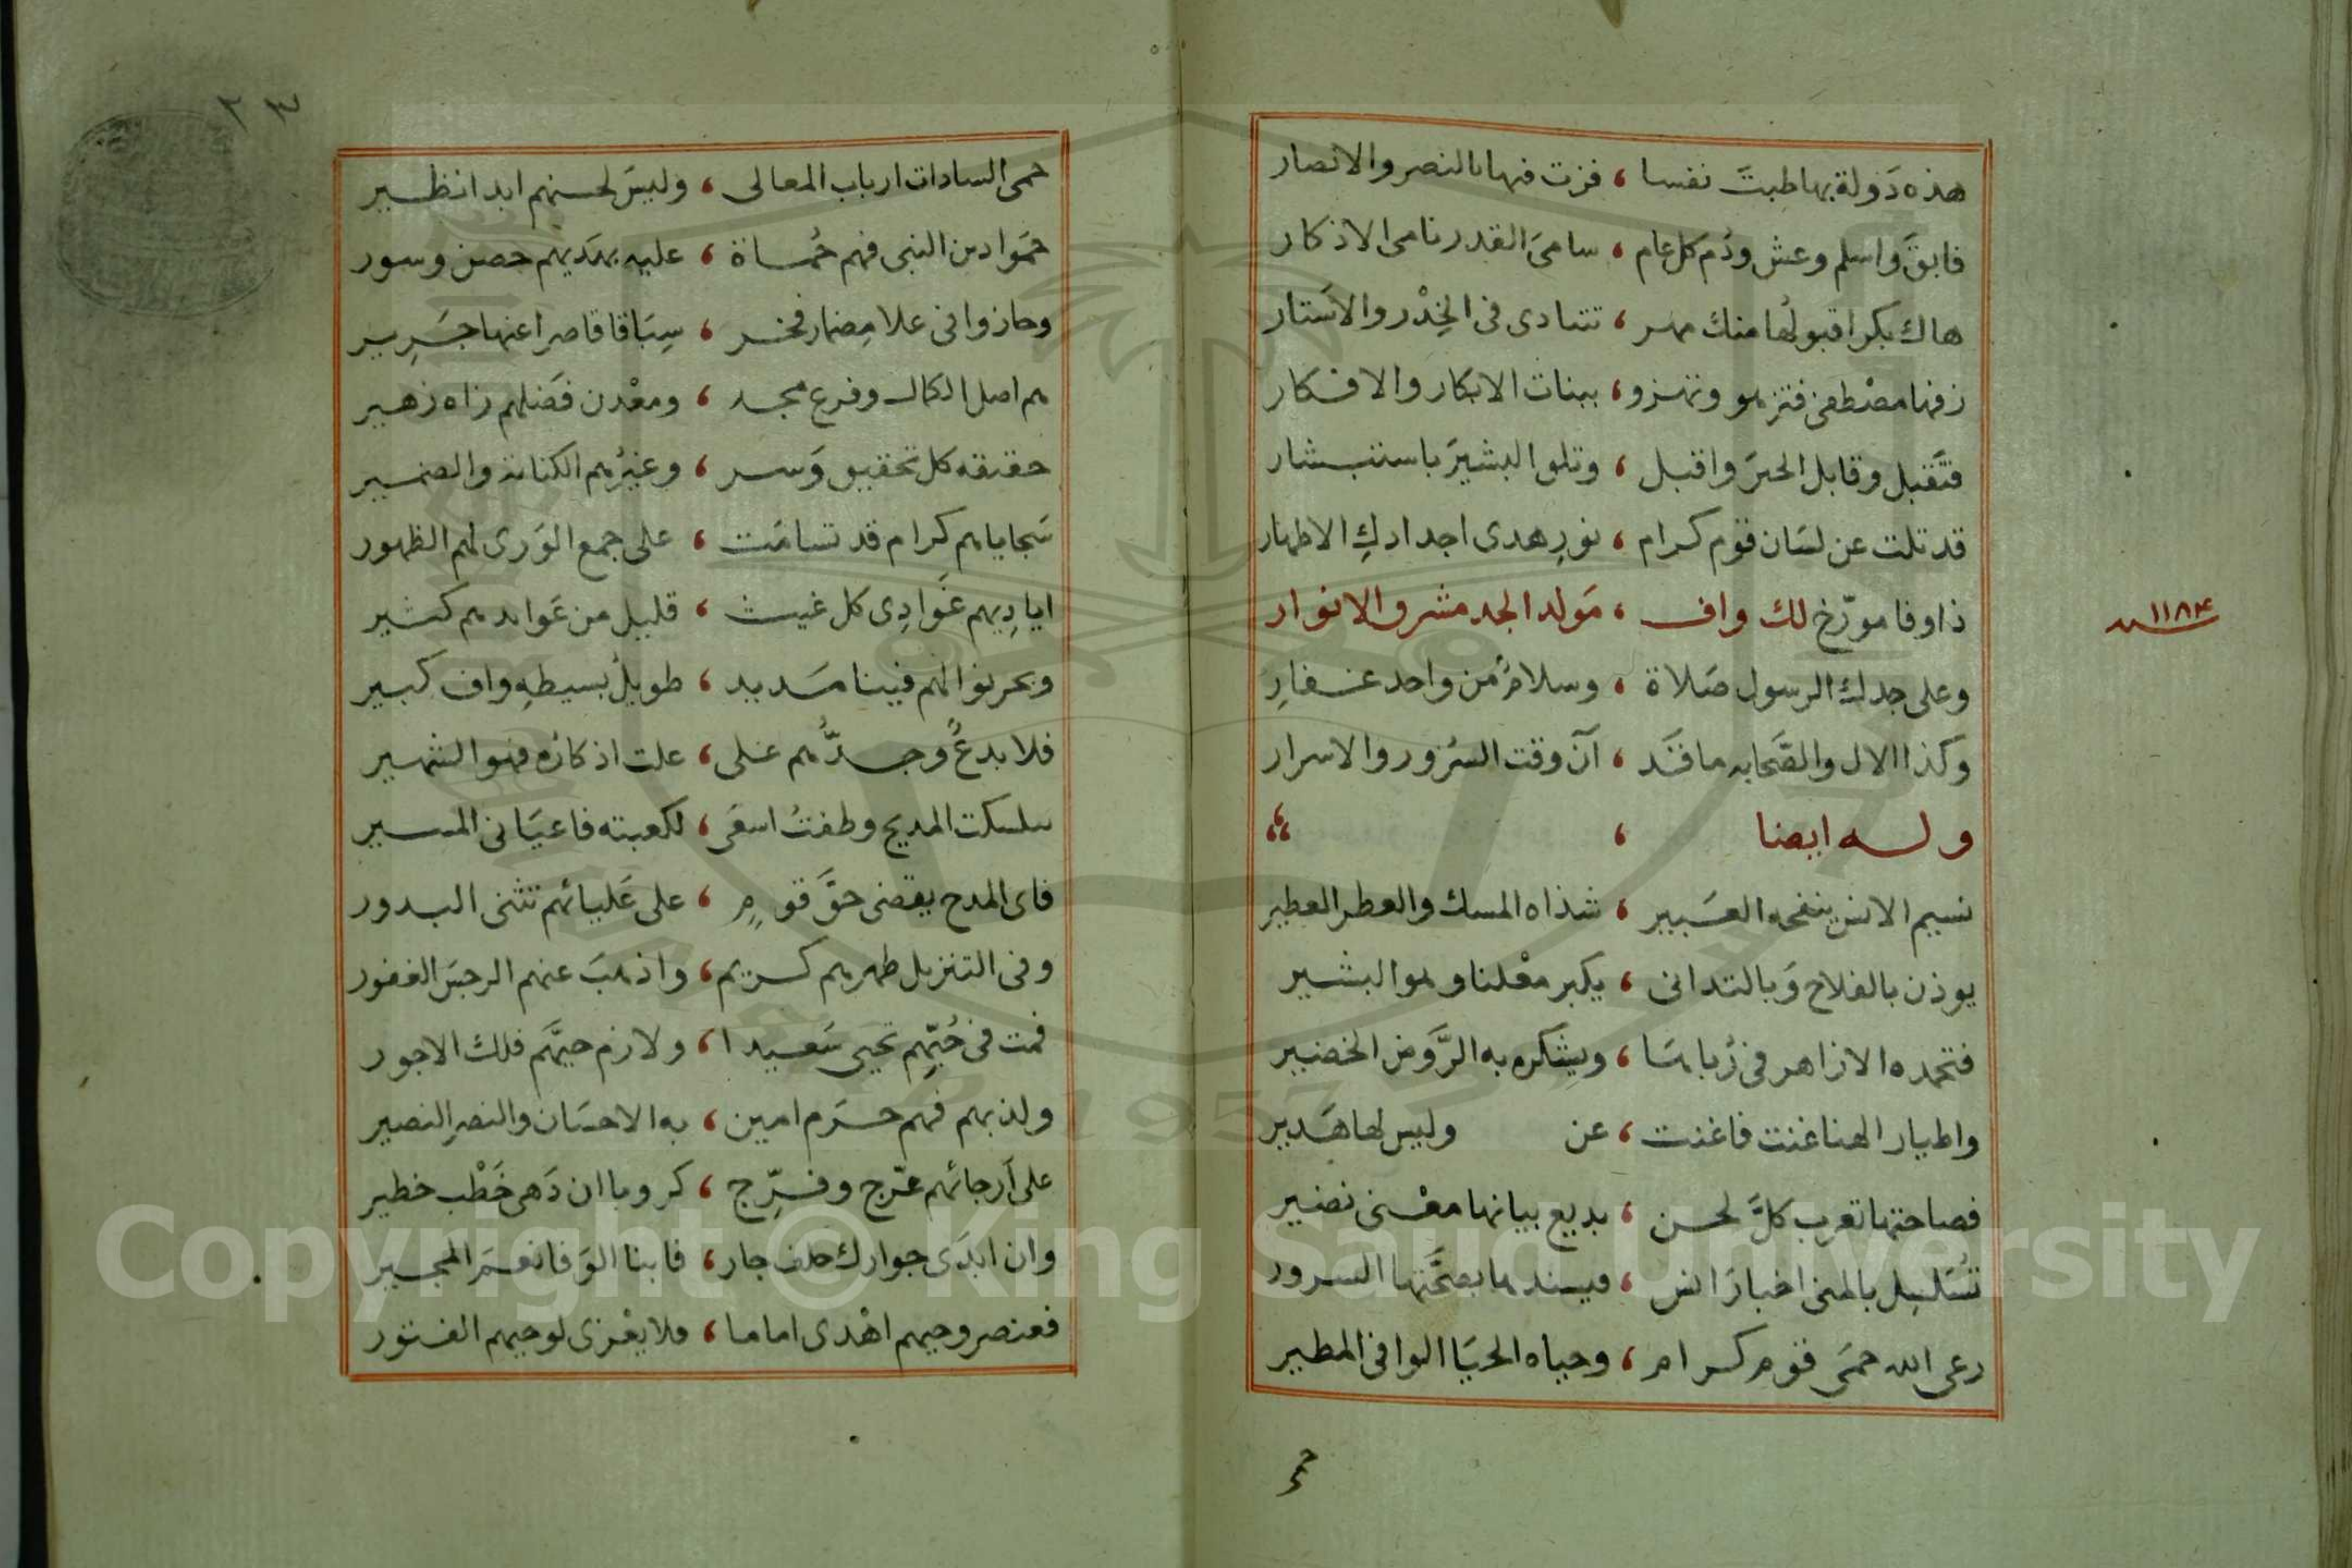 هذه دَولة بها طبتَ نفسا ، فزت فيها بالنصر والانصار
فابقَ واسلم وعش ودُم كل عام ، سامىَ القدر نامى الاذكار
هاك بكرا قبولُها منك مهر ، تتهادى فى الخِدْر والاستار
زفها مصْطفى فتزهو وتهزو ، ببنات الابكار والافكار
فتَقبل وقابل الحبرَ واقبل ، وتلو البشيرَ باستبشار
قد تلت عن لسَان قوم كرام ، نورِ هدى اجدادكِ الاطهار
ذا وفا مورّخ لك واف ، مَولد المجد مشرق الانوار
١١٨٤
وعلى جدك الرسول صَلاة ، وسلامٌ من واحد غفارِ
وكذا الال والصَّحابه ما قَد ، آنَ وقت السُرور والاسرار
وله ايضا
نسيم الانس ينفحه العَبير ، شذاه المسك والعطر العطير
يوذن بالفلاح وَبالتدانى ، يكبر معْلنا وهو البشير
فتحمده الازاهر فى رُباهَا ، ويشكره به الرَّوض الخضير
واطيار الهنا غنت فاغنت ، عن وليس لها هَدير
فصاحتها تعرب كلَّ لحن ، بديع بيانها معْنى نضير
تُسَلسِل بالمنى اخبارَ انس ، فيسندها بصحَّتها السرور
رعى الله حمىَ قوم كرام ، وحياه الحيَا الوافى المطير
حمى
٢٣
حمى السادات ارباب المعالى ، وليسَ لحسنهم ابدا نظير
حمَوا دين النبى فهم حُماة ، عليه بهَديهم حصن وسور
وحازوا فى علا مِضمار فخر ، سِبَاقا قاصرا عنها جَرير
هم اصل الكمال وفرع مجد ، ومعْدن فضلهم زاه زهير
حقيقه كل تحقيق وَسر ، وغيرُهم الكناية والضمير
سَجاياهم كرام قد تسامَت ، على جمع الوَرى لهم الظهور
اياديهم غوَادِى كل غيث ، قليل من عَوايدهم كثير
وبحر نوالهم فينا مَديد ، طويلُ بسيطهِ واف كبير
فلا بدعٌ وجدُّهم على ، علت اذكارُه فهو الشهير
سلكت المديح وطفتُ اسعَى ، لكعبته فاعيَانى المسير
فاى المدح يقضى حقَّ قومٍ ، على عَليائهم تثنى البدور
وفى التنزيل طهرهم كريم ، واذهبَ عنهم الرجسَ الغفور
فمت فى حُبّهِم تحيى سَعيدا ، ولازم حيَّهم فلك الاجور
ولذ بهم فهم حَرَم امين ، به الاحسَان والنصرِ النصير
على اَرجائهم عَرّج وفرِّج ، كروبا ان دَهى خَطْب خطير
وان ابدَى جوارك خلف جار ، فابنا الوَفا نعمَ المجير
فعنصر وحيهم اهْدى اماما ، فلا يعْزى لوحيهم الفتور
Copyright © King Saud University
1957